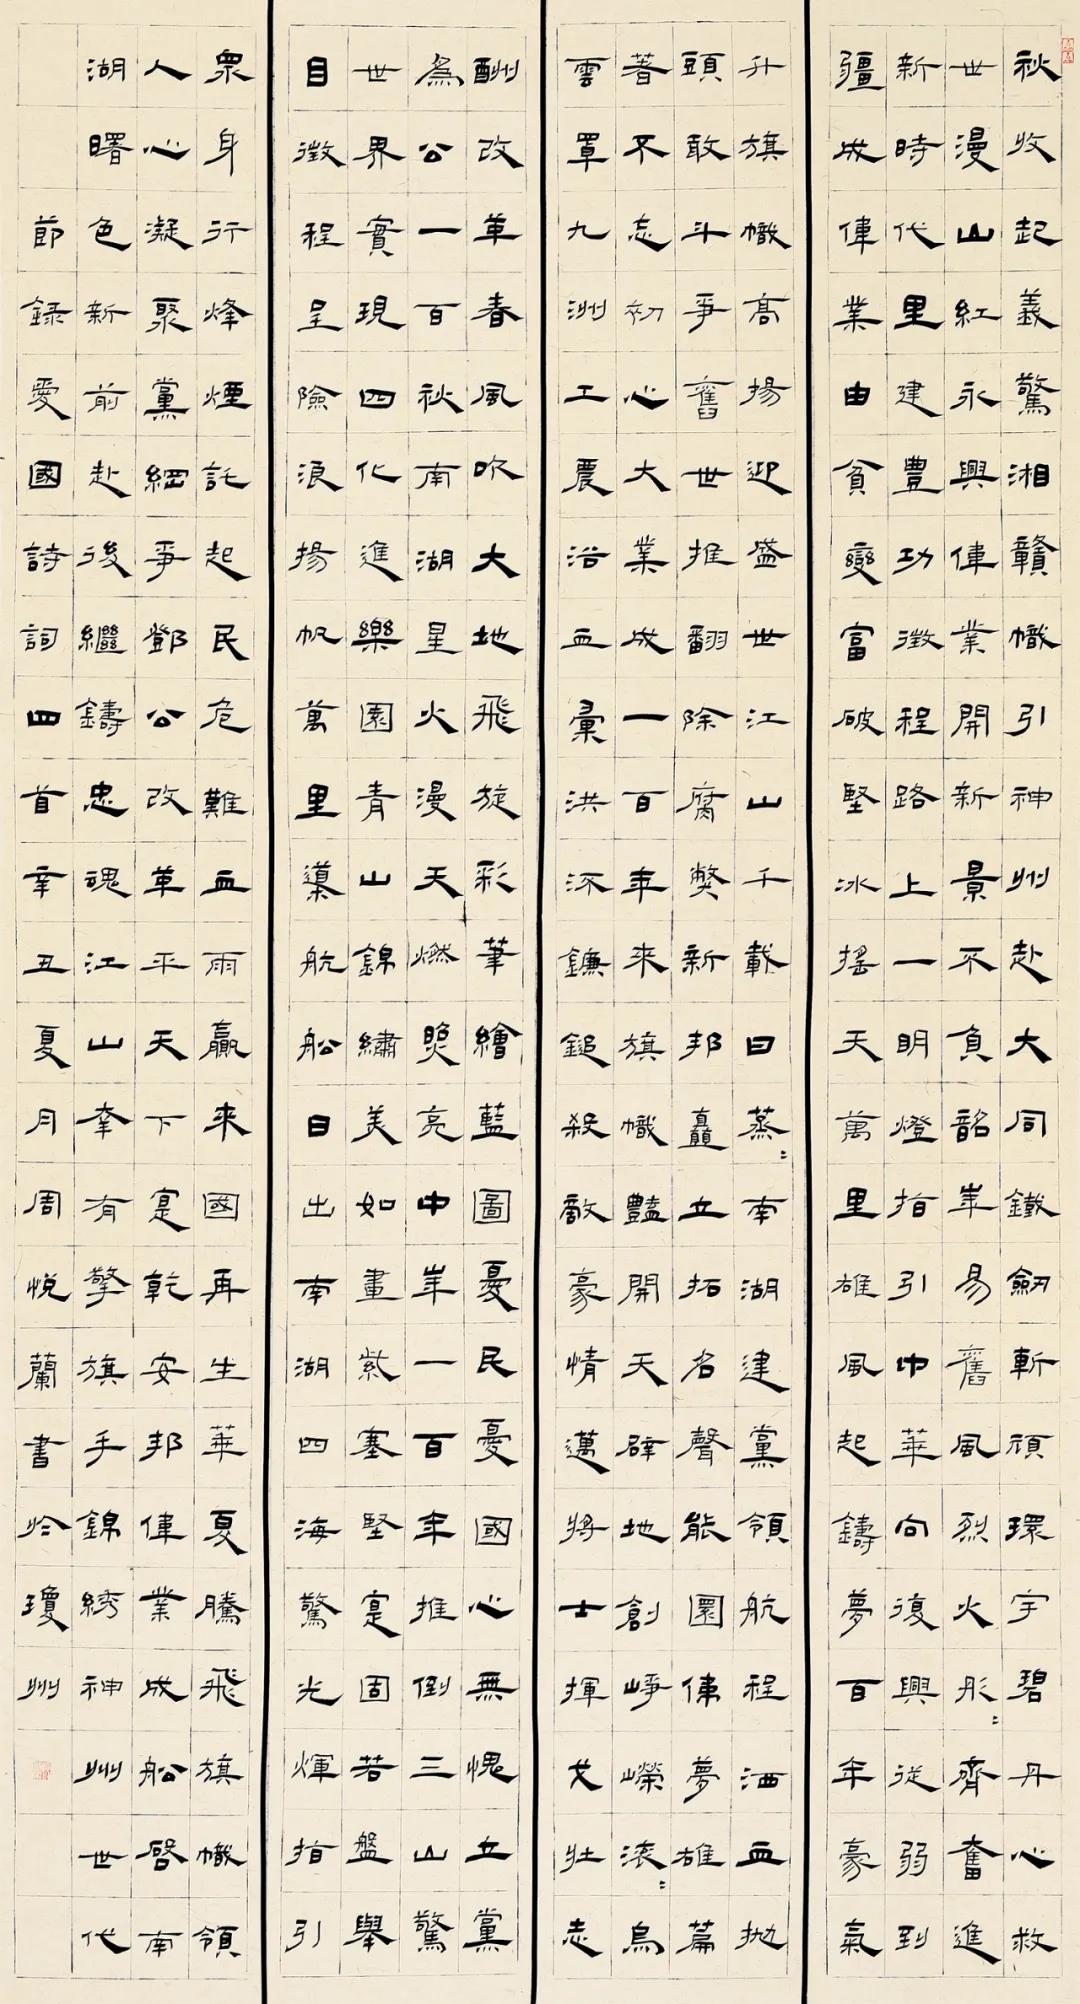 秋收起義驚湘贛幟引神州赴大同鐵劒斬頑環宇碧丹心救
世漫山紅永興偉業開新景不負韶年易舊風烈火彤〻齊奮進
新時代里建豐功徵程路上一明燈指引中華向復興從弱到
疆成偉業由貧變富破堅冰搖天萬里雄風起鑄夢百年豪氣
升旗幟高揚迎盛世江山千載日蒸〻南湖建黨領航程洒血拋
頭敢斗爭奮世推翻除腐獘新邦矗立拓名聲能圓夢雄篇
著不忘初心大業成一百年來旗幟豔開天辟地創崢嶸滾〻烏
雲罩九洲工農浴血彙洪流鐮鎚殺敵豪情邁將士揮戈壯志
酬改革春風吹大地飛旋彩筆繪藍圖憂民憂國心無愧立黨
為公一百秋南湖星火漫天燃照亮中年一百年推倒三山驚
世界實現四化進樂園青山錦繡美如畫紫塞堅寔固若盤舉
目徵程呈險浪揚帆萬里導航船日出南湖四海驚光輝指引
眾身行烽煙託起民危難血雨贏來國再生華夏騰飛旗幟領
人心凝聚黨綱爭鄧公改革平天下寔乾安邦偉業成船啓南
湖曙色新前赴後繼鑄忠魂江山牽有擎旗手錦綉神州世代
節錄愛國詩詞四首辛丑夏月周悅蘭書於瓊州